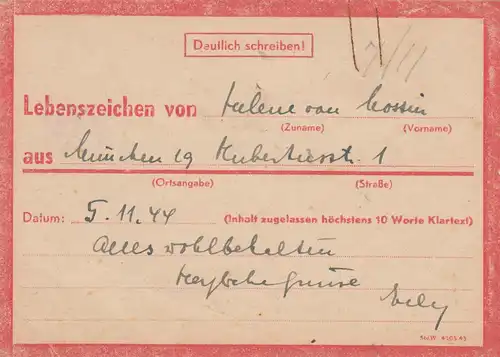 Deutlich schreiben!
7/11
Lebenszeichen von Helene von Bossin
(Zuname) (Vorname)
aus München 19 Hubertusstr. 1
(Ortsangabe) (Straße)
Datum: 5.11.44 (Inhalt zugelassen höchstens 10 Worte Klartext)
Alles wohlbehalten
Herzliche Grüsse